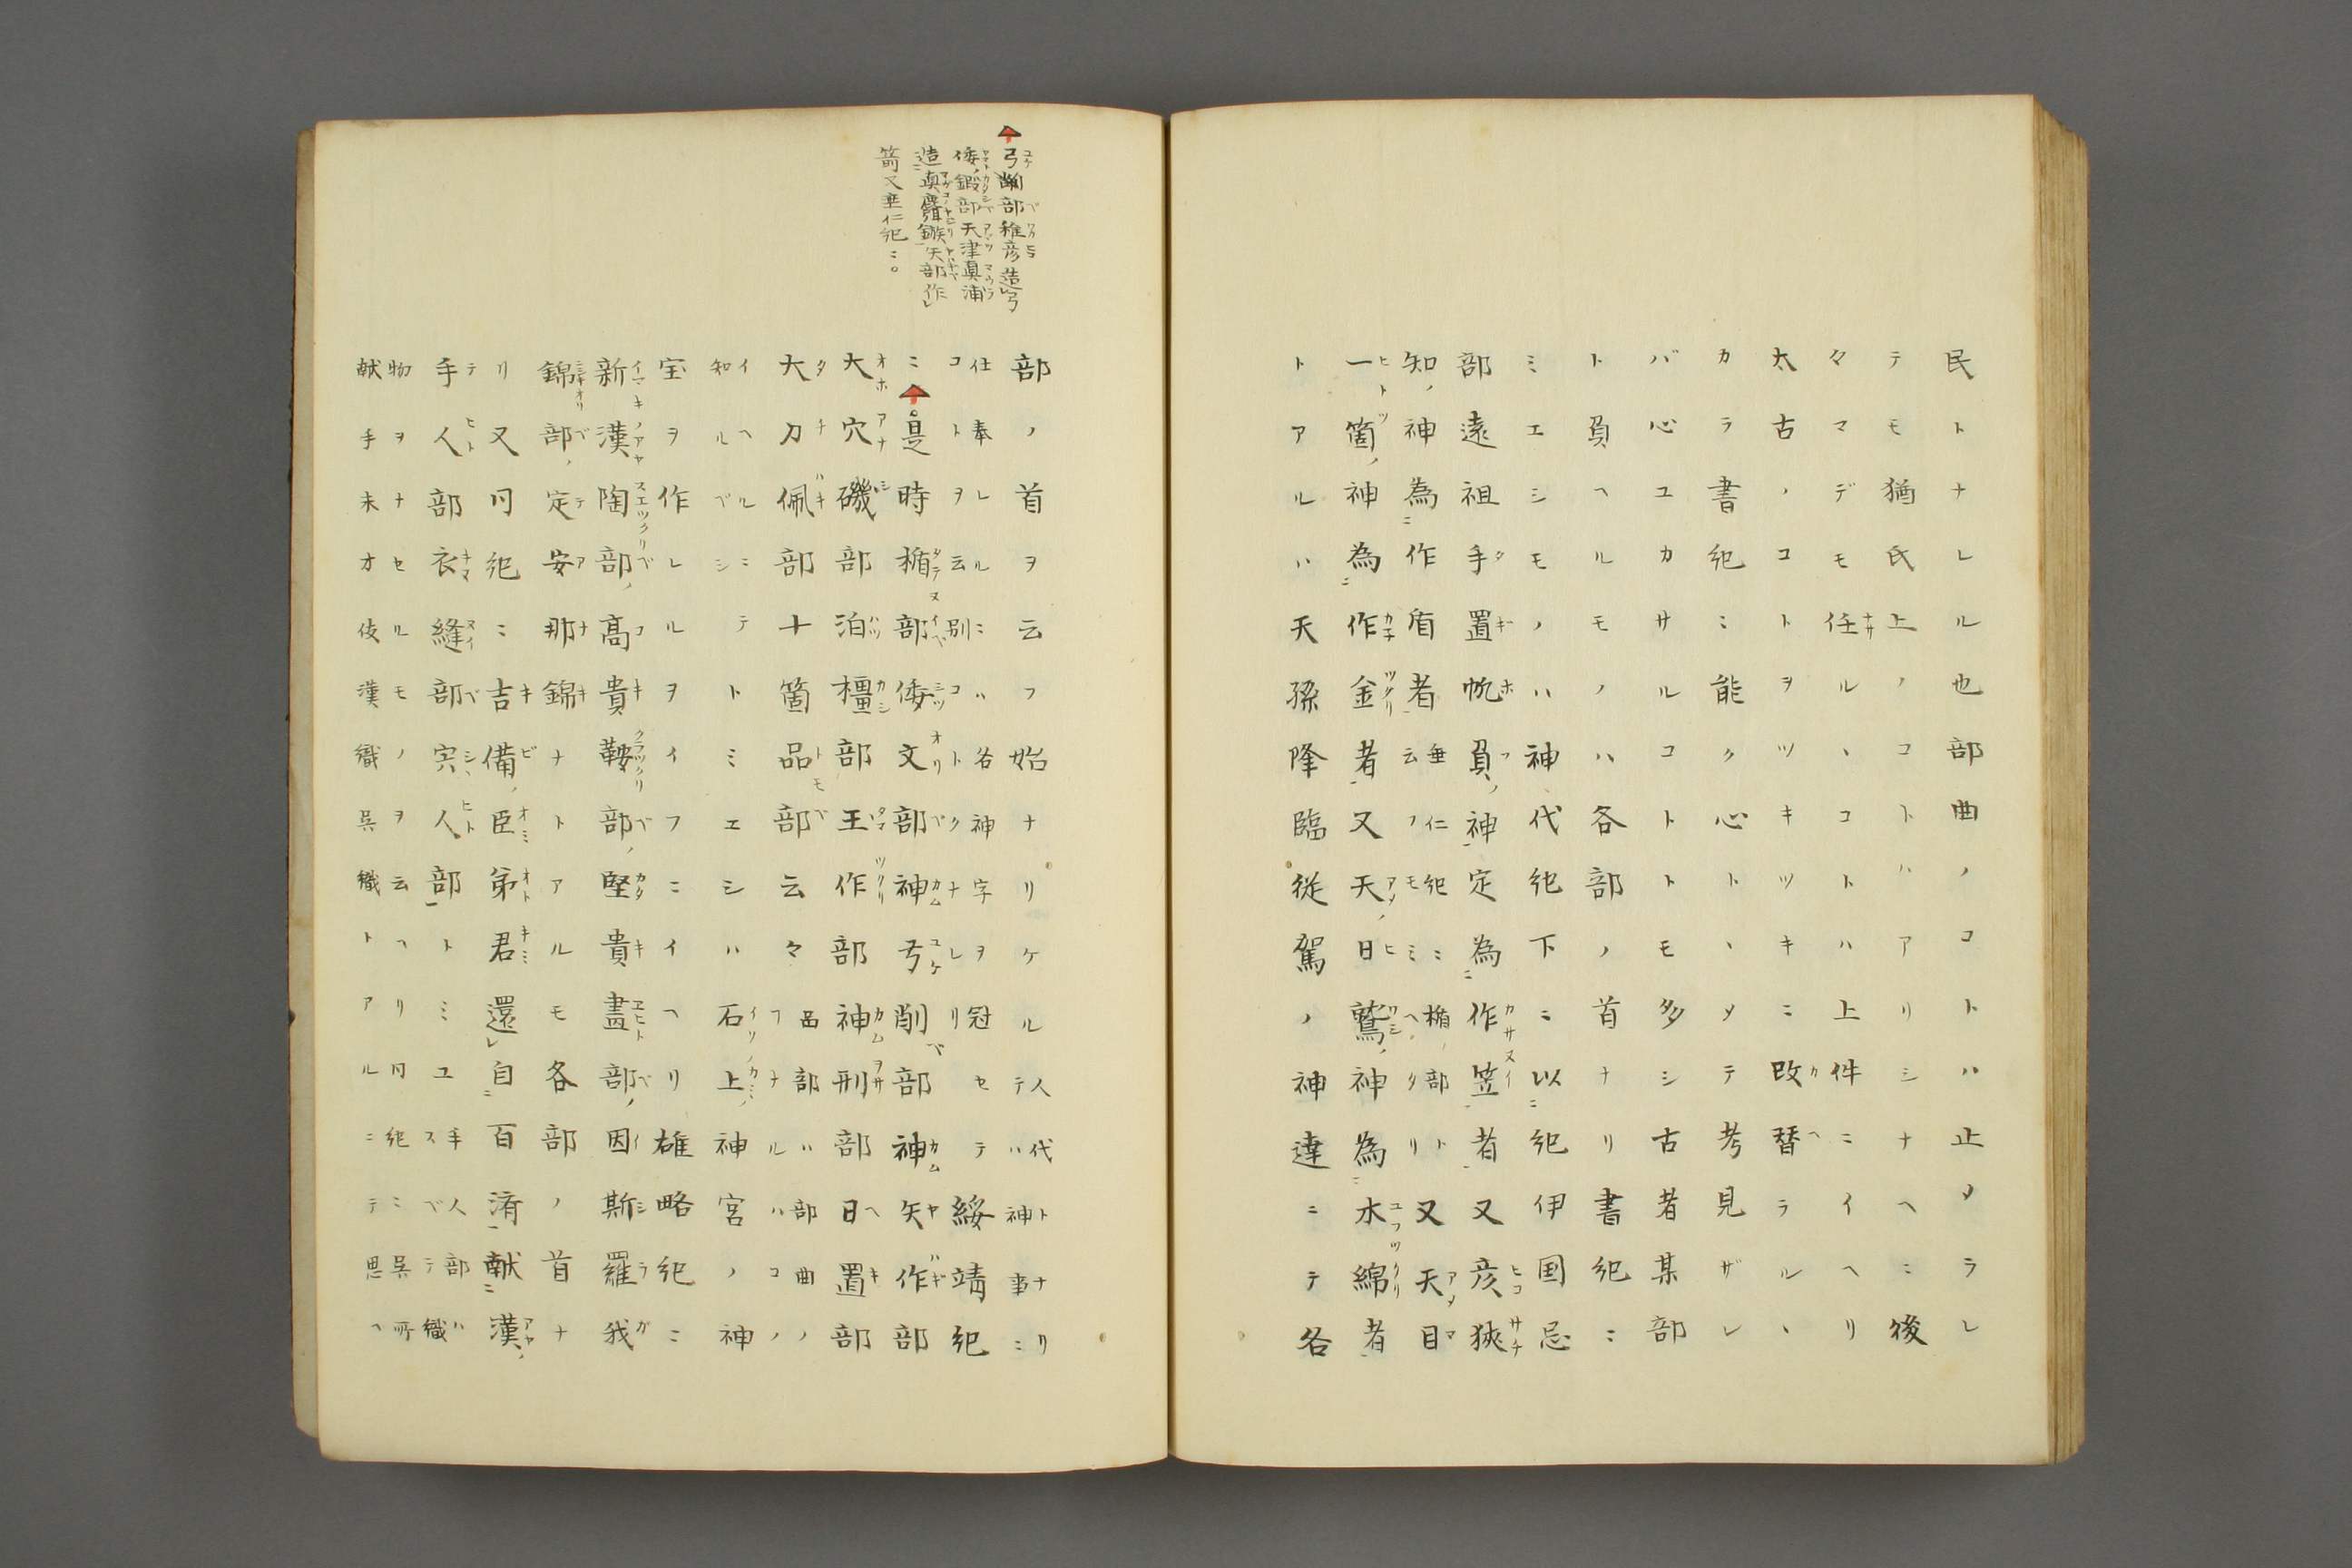 民トナレル也部曲ノコトハ止メラレ
テモ猶氏上ノコトハアリシナヘニ後
々マデモ任ルヽコトハ上件ニイヘリ
太古ノコトヲツキツキニ改替ラルヽ
カラ書紀ミ能ク心トヽメテ考見ザレ
バ心ユカサルコトトモ多シ古者某部
ト負ヘルモノハ各部ノ首ナリ書紀ニ
ミエシモノハ神代紀下ニ以紀伊国忌
部遠祖手置帆負ノ神定為作笠者又彦狹
知ノ神為作盾者垂仁紀ニ楯ノ部トモ云フヘタリ又天目
一箇ノ神為作金者又天ノ日鷲ノ神為木綿者
トアルハ天孫降臨従駕ノ神達ニテ各
部ノ首ヲ云フ始ナリケル人代トナリテハ神事ニ
仕奉レルニハ各神字ヲ冠セテコトヲ云別コトクナレリ綏靖紀
ニ是時楯部倭文部神弓削部神矢作部
大穴磯部泊橿部玉作部神刑部日置部
大刀佩部十箇品部云々品部ハ部曲ノフナルハコノ
イヘルニテ知ルベシトミエシハ石上神宮ノ神
宝ヲ作レルヲイフニイヘリ雄略紀ニ
新漢陶部高貴鞍部堅貴畫部因斯羅我
錦部定安那錦ナトアルモ各部ノ首ナ
リ又同紀ニ吉備臣弟君還自百済献漢
手人部衣縫部宍人部トミユ手人部ハステベテ織
物ヲナセルモノヲ云ヘリ同紀ニ呉所献手末才伎漢織呉織トアルニテ思ヘ
弓削部稚彦造弓
倭鍛部天津真浦
造真麛鏃矢部作
箭又垂仁紀ニ。